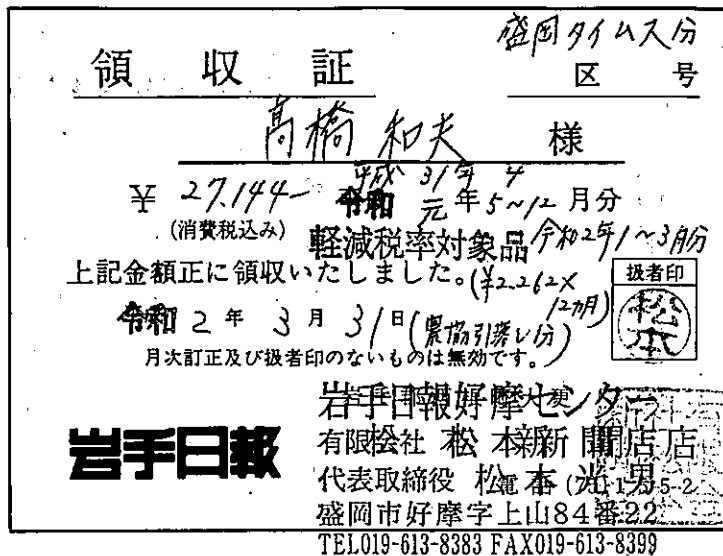 盛岡タイムス分
領収証
区 号
高橋 和夫 様
平成 31年 4
¥ 27,144- 令和 元年 5~12月分
(消費税込み)
軽減税率対象品 令和2年1~3月分
上記金額正に領収いたしました。(¥2,262×12カ月)
扱者印
松本
令和 2年 3月 31日 (農協引落し分)
月次訂正及び扱者印のないものは無効です。
岩手日報好摩センター
岩手日報
有限会社 松本新聞店
代表取締役 松本光男
盛岡市好摩字上山84番22
TEL019-613-8383 FAX019-613-8399